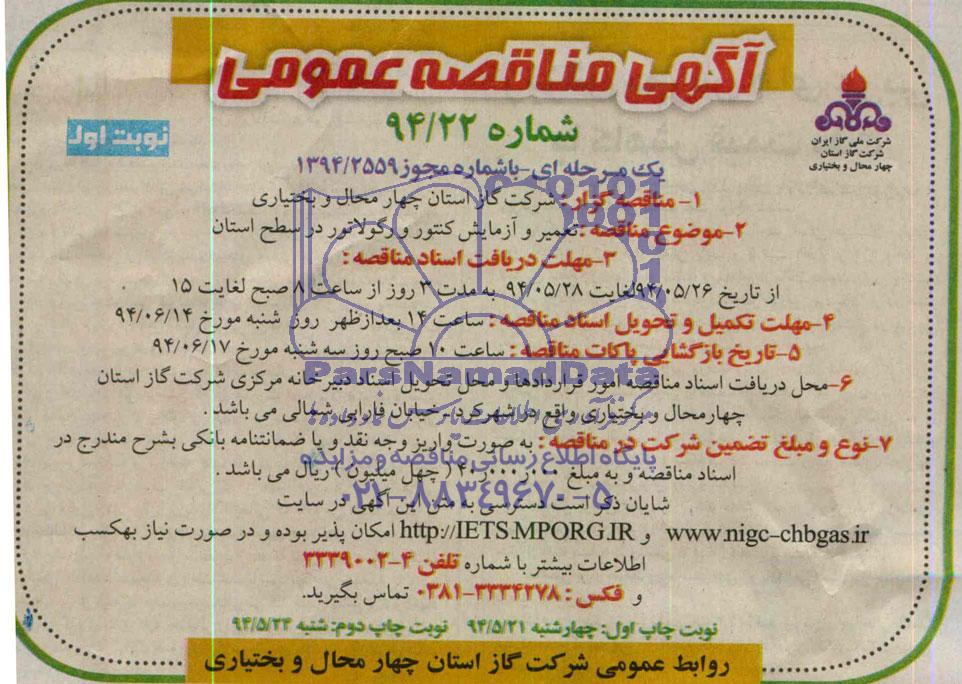 آگهی مناقصه عمومی
شماره ۹۴/۲۲
نوبت اول
شرکت ملی گاز ایران
شرکت گاز استان
چهار محال و بختیاری
یک مرحله ای-باشماره مجوز ۱۳۹۴/۲۵۵۹
۱- مناقصه گزار: شرکت گاز استان چهار محال و بختیاری
۲-موضوع مناقصه: تعمیر و آزمایش کنتور و رگولاتور در سطح استان
۳-مهلت دریافت اسناد مناقصه:
از تاریخ ۹۴/۰۵/۲۶لغایت ۹۴/۰۵/۲۸ به مدت ۳ روز از ساعت ۸ صبح لغایت ۱۵ .
۴-مهلت تکمیل و تحویل اسناد مناقصه: ساعت ۱۴ بعدازظهر روز شنبه مورخ ۹۴/۰۶/۱۴
۵-تاریخ بازگشایی پاکات مناقصه: ساعت ۱۰ صبح روز سه شنبه مورخ ۹۴/۰۶/۱۷
ParsNamadData
۶-محل دریافت اسناد مناقصه امور قراردادها و محل تحویل اسناد دبیرخانه مرکزی شرکت گاز استان
چهارمحال و بختیاری واقع در شهرکرد - خیابان فارابی شمالی می باشد .
۷-نوع و مبلغ تضمین شرکت در مناقصه: به صورت واریز وجه نقد و یا ضمانتنامه بانکی بشرح مندرج در
پایگاه اطلاع رسانی مناقصه و مزایده
اسناد مناقصه و به مبلغ ( چهل میلیون ) ریال می باشد .
۰۲۱-۸۸۳۴۹۶۷۰-۵
شایان ذکر است دسترسی به متن این آگهی در سایت
www.nigc-chbgas.ir و http://IETS.MPORG.IR امکان پذیر بوده و در صورت نیاز بهکسب
اطلاعات بیشتر با شماره تلفن ۴-۳۳۳۹۰۰۲
و فکس: ۳۳۳۴۲۷۸-۰۳۸۱ تماس بگیرید.
نوبت چاپ اول: چهارشنبه ۹۴/۵/۲۱ نوبت چاپ دوم: شنبه ۹۴/۵/۲۴
روابط عمومی شرکت گاز استان چهار محال و بختیاری